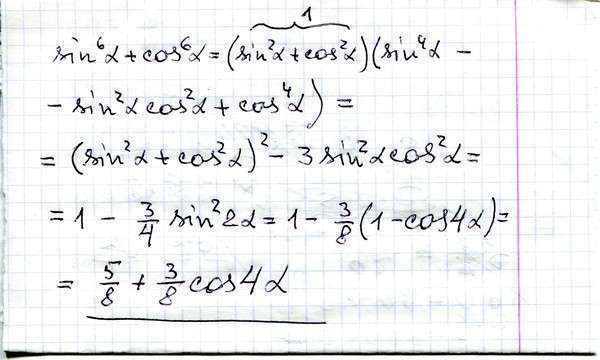 1
sin⁶α + cos⁶α = (sin²α + cos²α)(sin⁴α -
- sin²α cos²α + cos⁴α) =
= (sin²α + cos²α)² - 3 sin²α cos²α =
= 1 - 3/4 sin²2α = 1 - 3/8 (1 - cos4α) =
= 5/8 + 3/8 cos4α